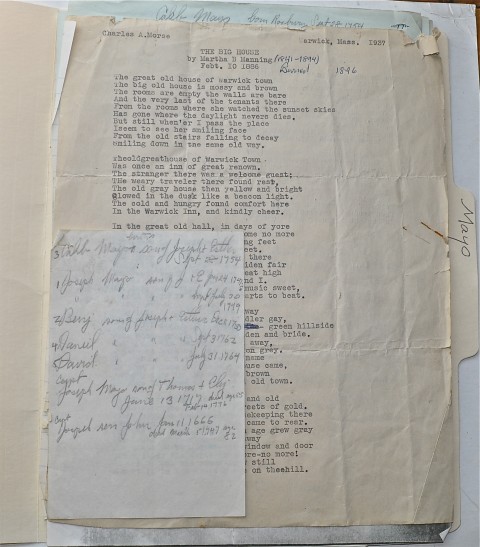 Caleb Mayo from Roxbury Sept 28 1754
Charles A.Morse
Warwick, Mass. 1937
THE BIG HOUSE
by Martha B Manning (1841-1894)
Febt. 10 1886
Burned 1896
The great old house of Warwick town
The big old house is mossy and brown
The rooms are empty the walls are bare
And the very last of the tenants there
From the rooms where she watched the sunset skies
Has gone where the daylight never dies.
But still when'er I pass the place
Iseem to see her smiling face
From the old stairs falling to decay
smiling down in the same old way.
Theoldgreathouse of Warwick Town
Was once an inn of great renown.
The stranger there was a welcome guest;
The weary traveler there found rest,
The old gray house then yellow and bright
Glowed in the dusk like a beacon light.
The cold and hungry found comfort here
In the Warwick Inn, and kindly cheer.
In the great old hall, in days of yore
ome no more
ng feet
eet.
there
iden fair
eet high
nd I.
music sweet,
arts to beat.
way
dler gay,
green hillside
den and bride.
away,
on grey.
name
use came,
brown
old town.
and old
reets of gold.
ekeeping there
came to rear.
age grew gray
way
window and door
re-no more!
still
on thehill.
Mayo
3 Caleb Mayo son of Joseph + Esther
Sept 28-1754
1 Joseph Mayo son of J + E
2 Benj son of Joseph + Esther
4 Daniel " " 1762
5 David " July 31, 1764
Capt
Joseph May son of Thomas + Eliz
June 13 1717 died
Feb 14 1776
Joseph son John Jan 11 1666
82